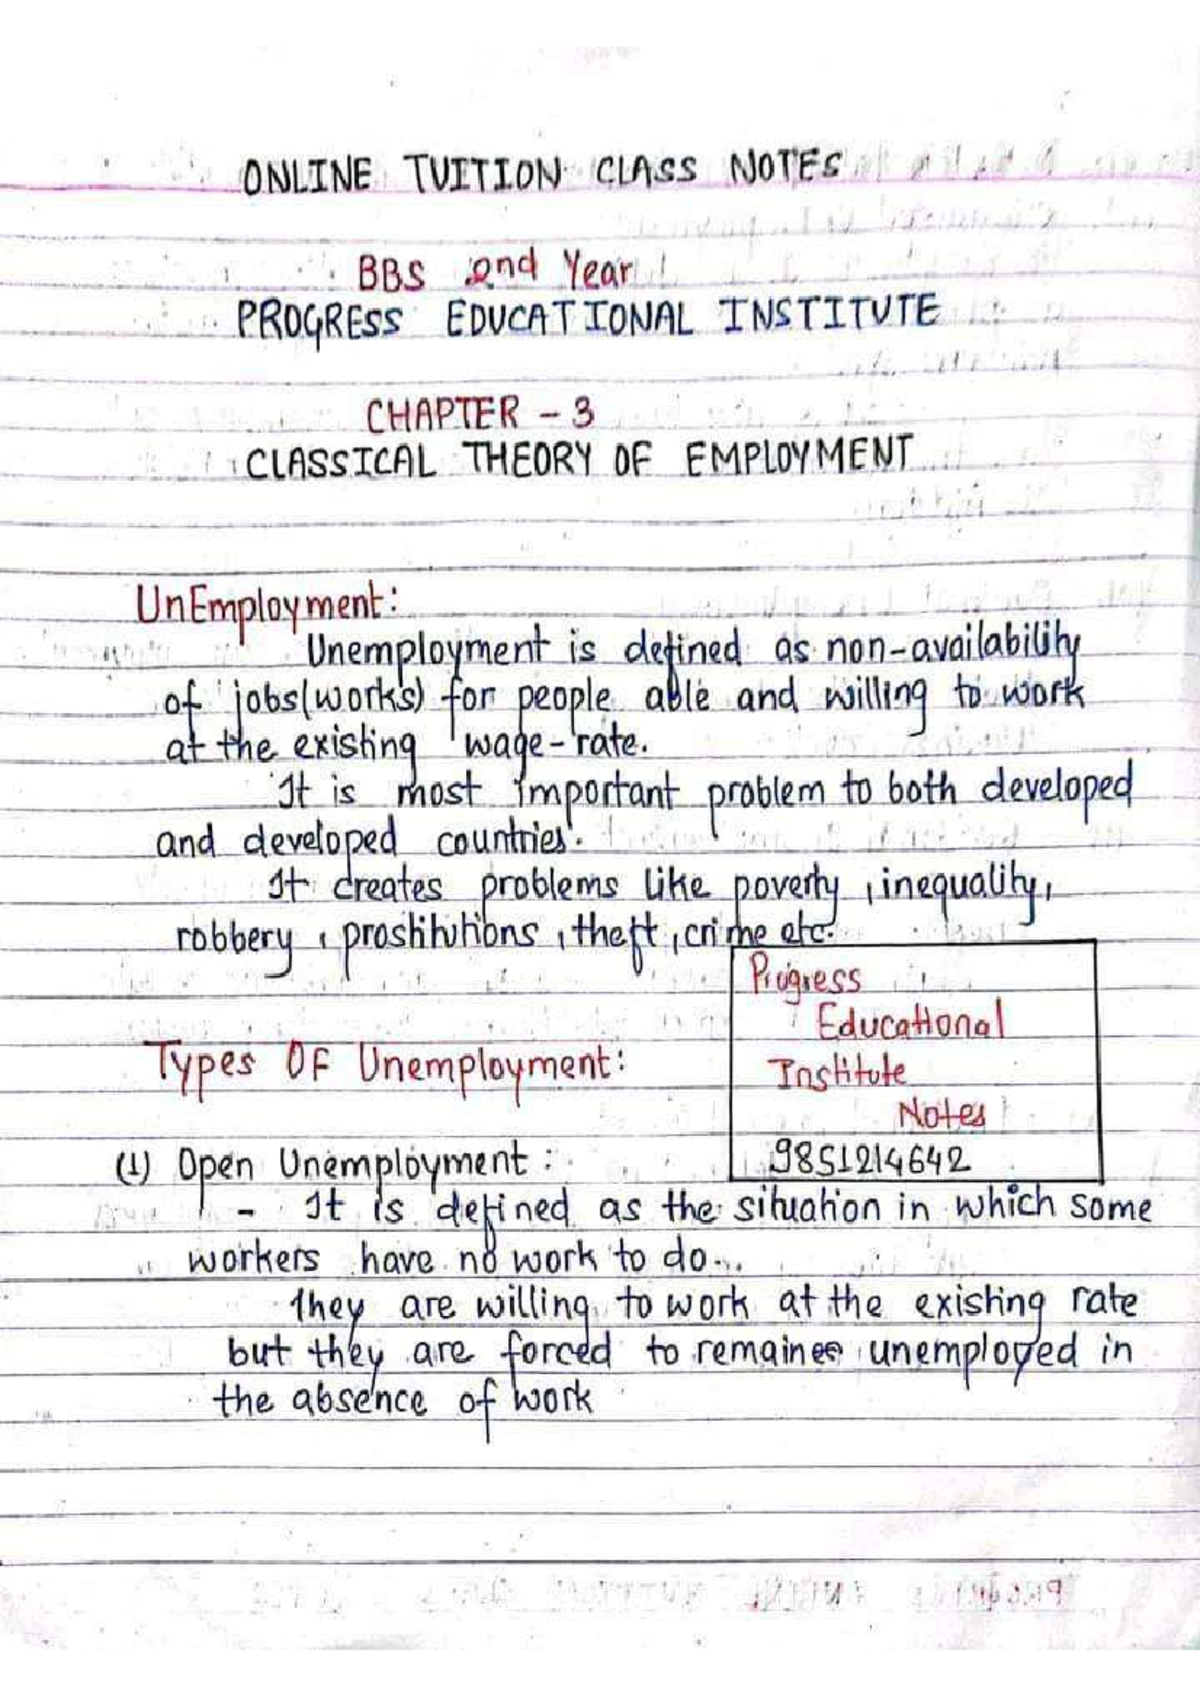 ONLINE TUITION CLASS NOTES
BBS 2nd Year
PROGRESS EDUCATIONAL INSTITUTE
CHAPTER - 3
CLASSICAL THEORY OF EMPLOYMENT
UnEmployment:
Unemployment is defined as non-availability
of jobs(works) for people able and willing to work
at the existing wage-rate.
It is most important problem to both developed
and developed countries.
It creates problems like poverty, inequality,
robbery, prostitutions, theft, crime etc.
Progress
Educational
Institute
Notes
9851214642
Types OF Unemployment:
(1) Open Unemployment:
- It is defined as the situation in which some
workers have no work to do...
They are willing to work at the existing rate
but they are forced to remaines unemployed in
the absence of work